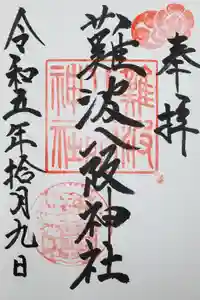 奉拝
難波八阪神社
令和五年拾月九日
難波
神社